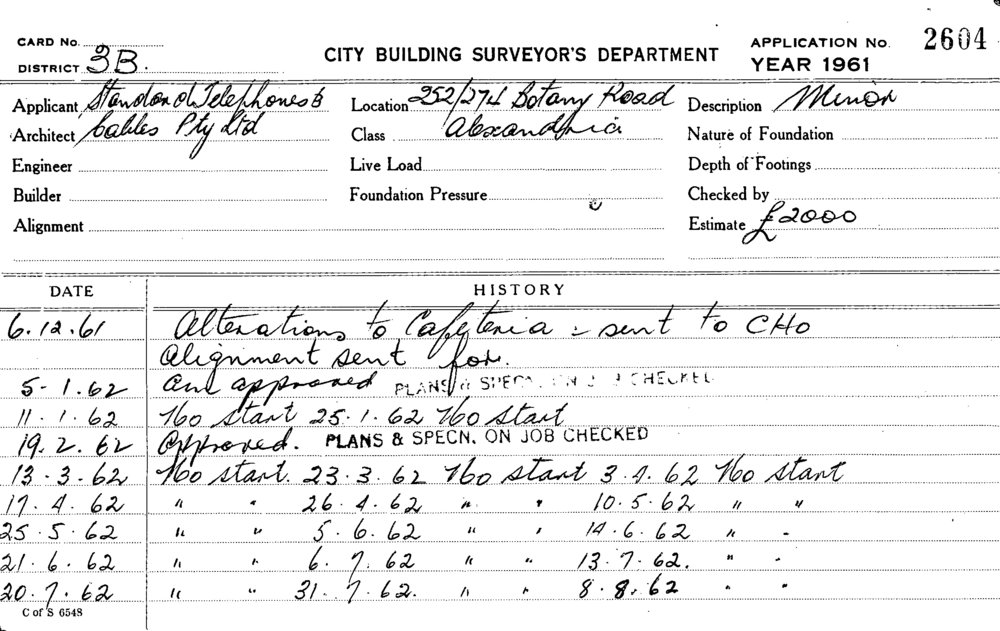 CARD No.
DISTRICT 3B.
CITY BUILDING SURVEYOR'S DEPARTMENT
APPLICATION No. 2604
YEAR 1961
Applicant Standard Telephones &
Location 252/274 Botany Road
Description Minor
Architect Cables Pty Ltd
Class Alexandria
Nature of Foundation
Engineer
Live Load
Depth of Footings
Builder
Foundation Pressure
Checked by
Alignment
Estimate £2000
DATE HISTORY
6.12.61 Alterations to Cafeteria - sent to CHO
Alignment sent for.
5-1.62 approved PLANS & SPECN. ON JOB CHECKED
11.1.62 No start 25.1.62 No start
19.2.62 Approved. PLANS & SPECN. ON JOB CHECKED
13.3.62 No start. 23.3.62 No start 3.4.62 No start
17.4.62 " " 26.4.62 " " 10.5.62 " "
25.5.62 " " 5.6.62 " " 14.6.62 " "
21.6.62 " " 6.7.62 " " 13.7.62. " "
20.7.62 " " 31.7.62. " " 8.8.62 " "
C of S 6548